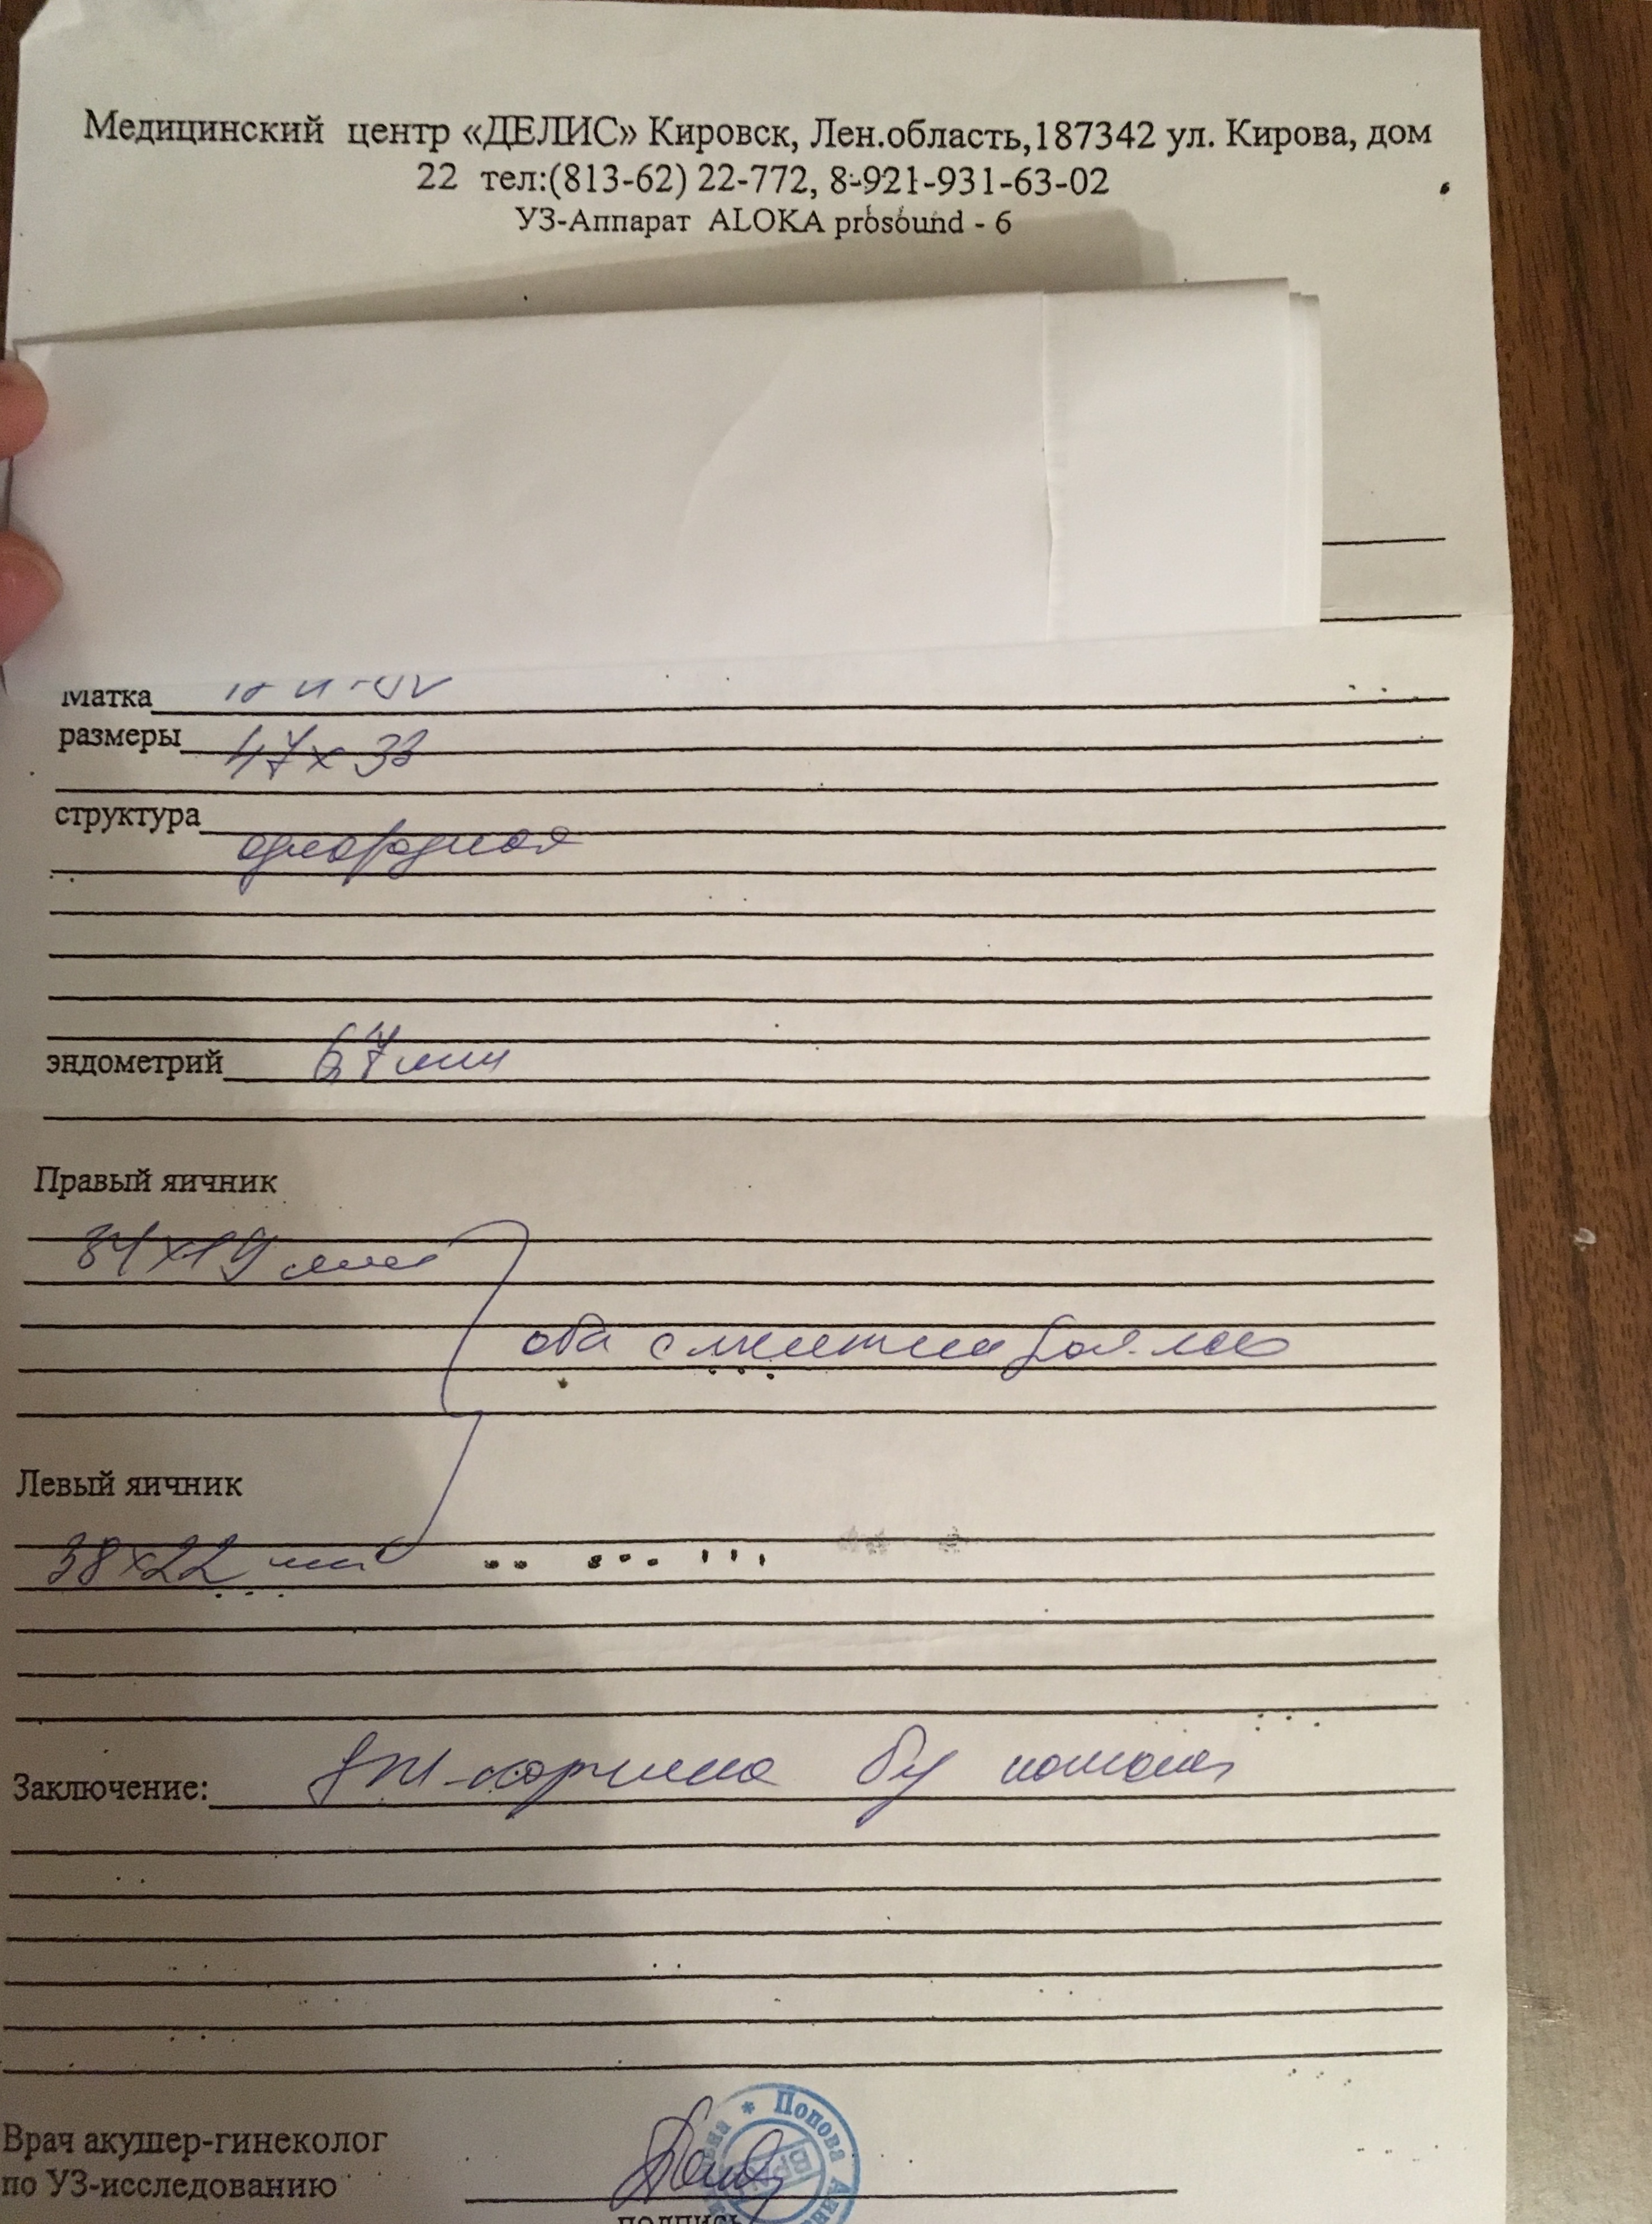 Медицинский центр «ДЕЛИС» Кировск, Лен.область,187342 ул. Кирова, дом
22 тел:(813-62) 22-772, 8-921-931-63-02
УЗ-Аппарат ALOKA prosound - 6
Матка
размеры 47х33
структура
однородная
эндометрий 6,7 мм
Правый яичник
34х19 мм
оба с мелкими фол.
Левый яичник
38х22 мм
Заключение: УЗИ-картина б/у
Врач акушер-гинеколог
по УЗ-исследованию
подпись
Попова